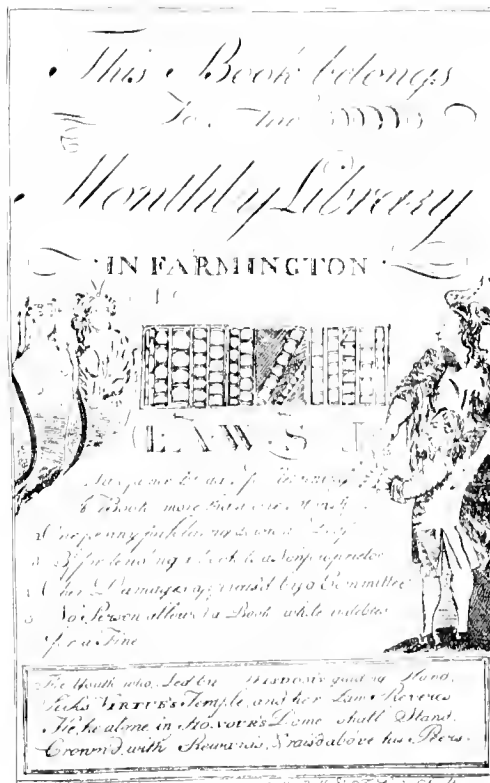 This Book belongs
To the
Monthly Library
IN FARMINGTON
LAWS
per day for
a Book more than one Month
One penny
3 for lending a Book to a Nonproprietor
4 Other Damages apprais'd by a Committee
5 No Person allow'd a Book while indebted
for a Fine
The Youth who, Led by WISDOM'S guiding Hand,
Seeks VIRTUE'S Temple, and her Law Reveres
He, he alone in HONOUR'S Dome shall Stand,
Crown'd with Rewards, & rais'd above his Peers.